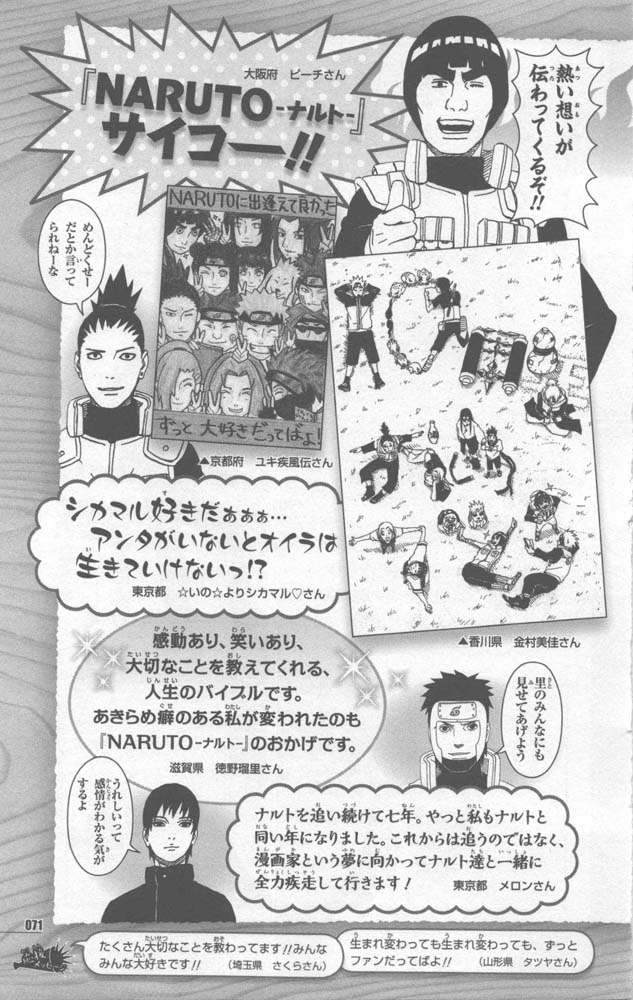 大阪府 ピーチさん
『NARUTO-ナルト-』
サイコー!!
熱い想いが
伝わってくるぞ!!
めんどくせー
だとか言って
られねーな
NARUTOに出逢えて良かった
ずっと 大好きだってばよ!
▲京都府 ユキ疾風伝さん
シカマル好きだぁぁぁ…
アンタがいないとオイラは
生きていけないっ!?
東京都 ☆いの☆よりシカマル♡さん
▲香川県 金村美佳さん
感動あり、笑いあり、
大切なことを教えてくれる、
人生のバイブルです。
あきらめ癖のある私が変われたのも
『NARUTO-ナルト-』のおかげです。
滋賀県 徳野瑠里さん
里のみんなにも
見せてあげよう
うれしいって
感情がわかる気が
するよ
ナルトを追い続けて七年。やっと私もナルトと
同い年になりました。これからは追うのではなく、
漫画家という夢に向かってナルト達と一緒に
全力疾走して行きます!
東京都 メロンさん
071
たくさん大切なことを教わってます!!みんな
みんな大好きです!! (埼玉県 さくらさん)
生まれ変わっても生まれ変わっても、ずっと
ファンだってばよ!! (山形県 タツヤさん)